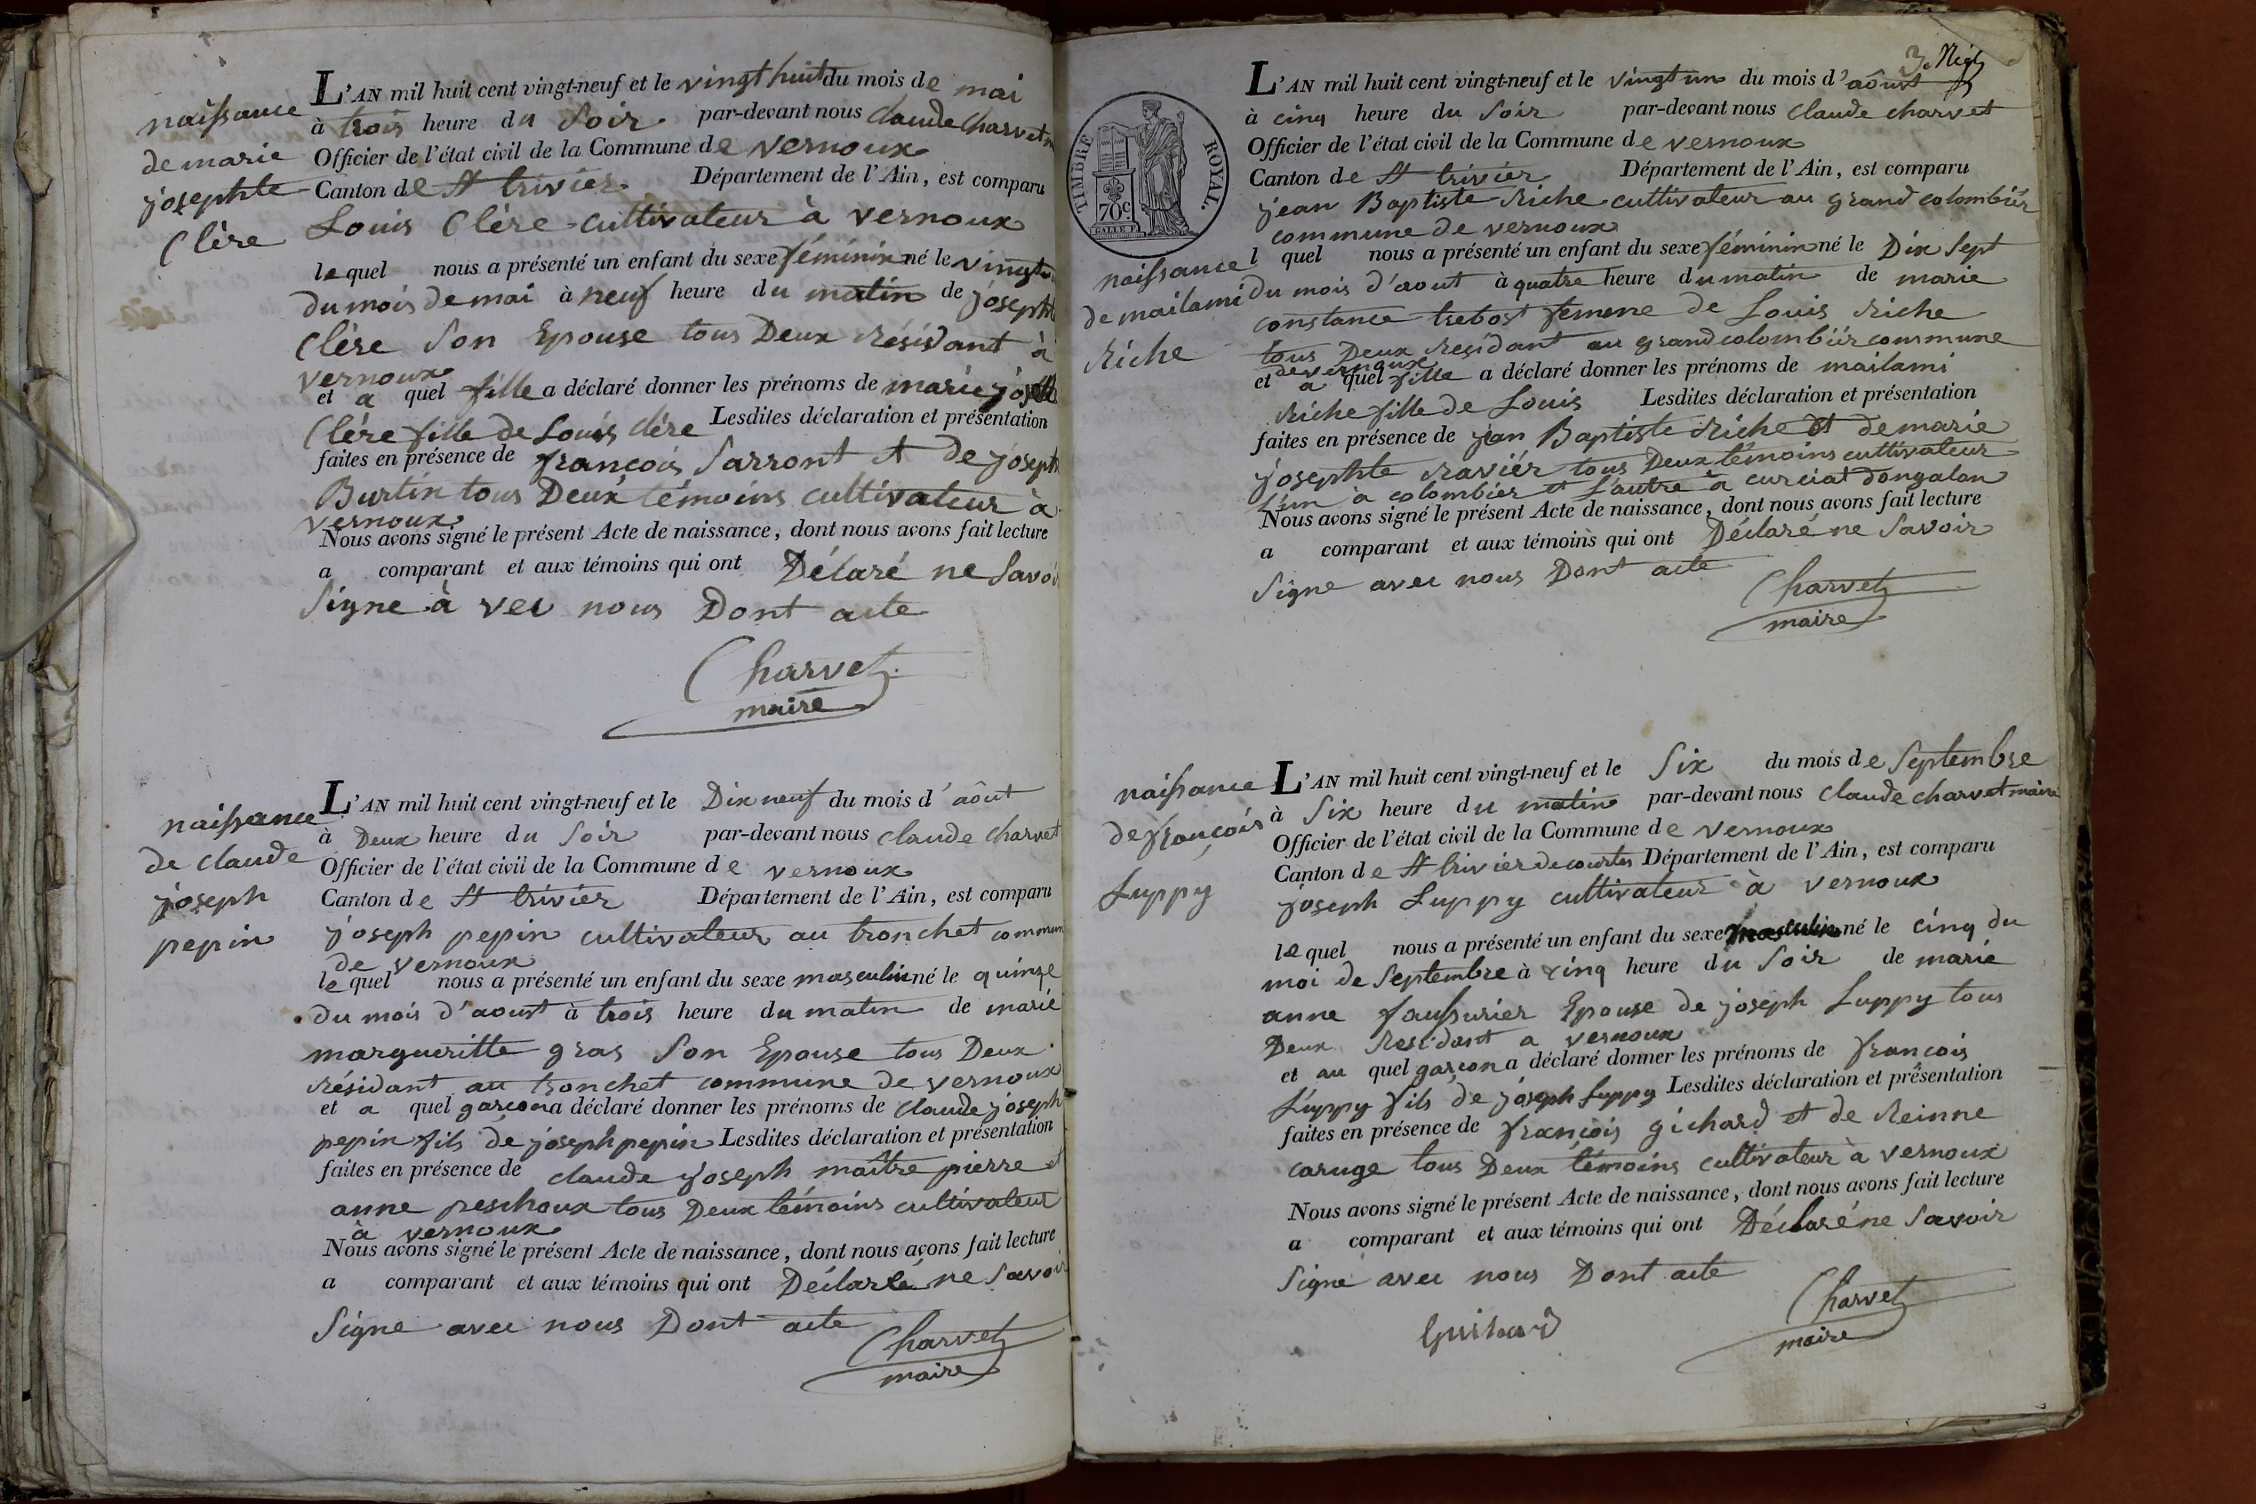 naissance
de marie
josephte
Clère
L'AN mil huit cent vingt-neuf et le vingt huit du mois de mai
à trois heure du Soir par-devant nous claude charvet
Officier de l'état civil de la Commune de vernoux
Canton de St trivier Département de l'Ain, est comparu
Louis Clère cultivateur à vernoux
le quel nous a présenté un enfant du sexe féminin né le vingt
du mois de mai à neuf heure du matin de
Clère Son Epouse tous Deux résidant à
vernoux
et a quel fille a déclaré donner les prénoms de marie
Clère fille de Louis clère Lesdites déclaration et présentation
faites en présence de françois Sarront et de joseph
Burtin tous Deux témoins cultivateur à
vernoux
Nous avons signé le présent Acte de naissance, dont nous avons fait lecture
a comparant et aux témoins qui ont Délaré ne Savoi
Signe à vec nous Dont acte
Charvet
maire
naissance
de claude
joseph
pepin
L'AN mil huit cent vingt-neuf et le Dix neuf du mois d'aôut
à Deux heure du Soir par-devant nous claude charvet
Officier de l'état civil de la Commune de vernoux
Canton de St trivier Département de l'Ain, est comparu
joseph pepin cultivateur au tronchet commun
de vernoux
le quel nous a présenté un enfant du sexe masculin né le quinze
du mois d'aoust à trois heure du matin de marie
margueritte gras Son Epouse tous Deux
résidant au tronchet commune de vernoux
et a quel garcon a déclaré donner les prénoms de claude joseph
pepin fils de joseph pepin Lesdites déclaration et présentation
faites en présence de claude joseph maître pierre et
anne peschoux tous Deux témoins cultivateur
à vernoux
Nous avons signé le présent Acte de naissance, dont nous avons fait lecture
a comparant et aux témoins qui ont Déclaré ne Savoir
Signe avec nous Dont acte
Charvet
maire
3e
TIMBRE ROYAL.
70c
naissance
de mailami
Riche
L'AN mil huit cent vingt-neuf et le vingt un du mois d'aôust
à cinq heure du Soir par-devant nous claude charvet
Officier de l'état civil de la Commune de vernoux
Canton de St trivier Département de l'Ain, est comparu
jean Baptiste Riche cultivateur au grand colombiér
commune de vernoux
l quel nous a présenté un enfant du sexe féminin né le Dix Sept
du mois d'aout à quatre heure du matin de marie
constance trebost femme de Louis Riche
tous Deux residant au grand colombiér commune
de vernoux
et a quel fille a déclaré donner les prénoms de mailami
Riche fille de Louis Lesdites déclaration et présentation
faites en présence de jean Baptiste Riche et de marie
josephte raviér tous Deux témoins cultivateur
L'un a colombiér et L'autre à curciat dongalon
Nous avons signé le présent Acte de naissance, dont nous avons fait lecture
a comparant et aux témoins qui ont Déclaré ne Savoir
Signe avec nous Dont acte
Charvet
maire
naissance
de françois
Luppy
L'AN mil huit cent vingt-neuf et le Six du mois de Septembre
à Six heure du matin par-devant nous claude charvet maire
Officier de l'état civil de la Commune de vernoux
Canton de St trivier de courtes Département de l'Ain, est comparu
joseph Luppy cultivateur à vernoux
le quel nous a présenté un enfant du sexe masculin né le cinq du
moi de Septembre à cinq heure du Soir de marie
anne faussurier Epouse de joseph Luppy tous
Deux Residant a vernoux
et au quel garçon a déclaré donner les prénoms de françois
Luppy fils de joseph Luppy Lesdites déclaration et présentation
faites en présence de françois gichard et de Reinne
caruge tous Deux témoins cultivateur à vernoux
Nous avons signé le présent Acte de naissance, dont nous avons fait lecture
a comparant et aux témoins qui ont Déclaré ne Savoir
Signe avec nous Dont acte
Guichard
Charvet
maire